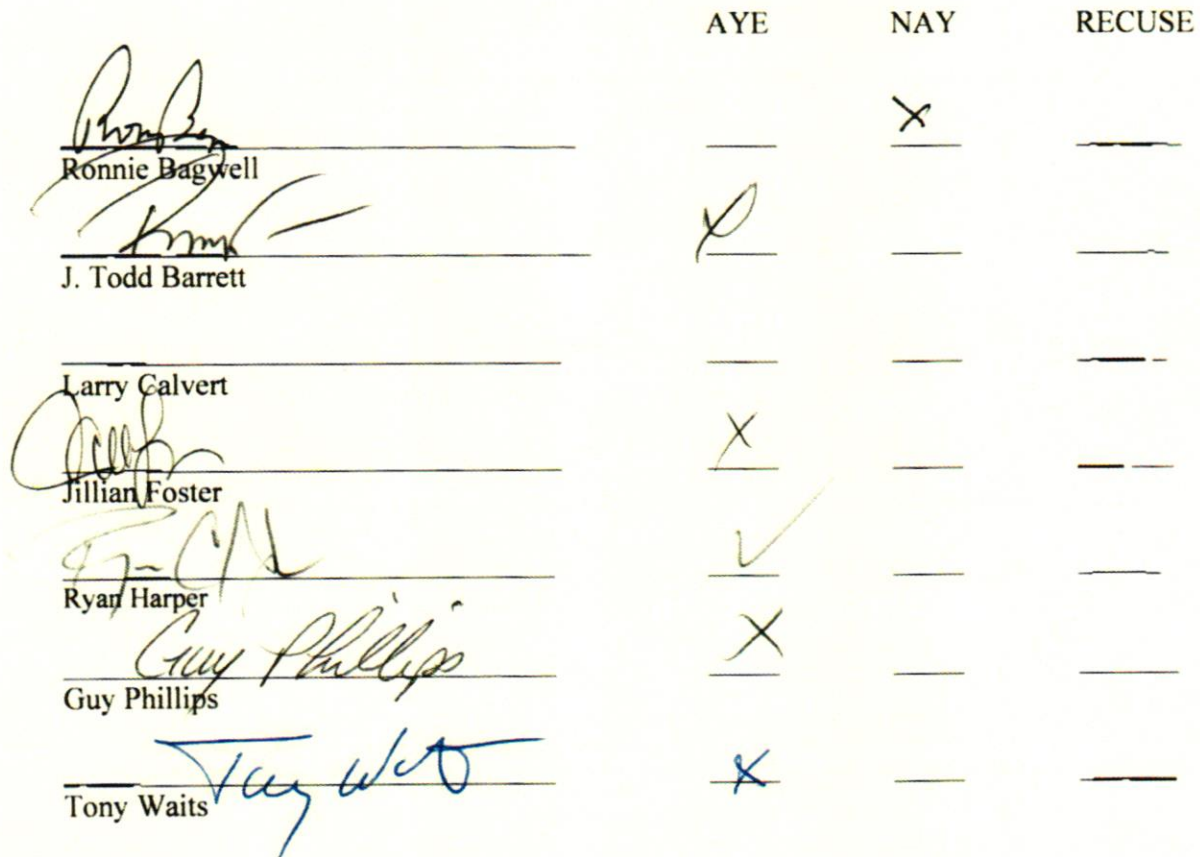 AYE NAY RECUSE
X
Ronnie Bagwell
X
J. Todd Barrett
Larry Calvert
X
Jillian Foster
✓
Ryan Harper
Guy Phillips X
Guy Phillips
Tony Waits X
Tony Waits